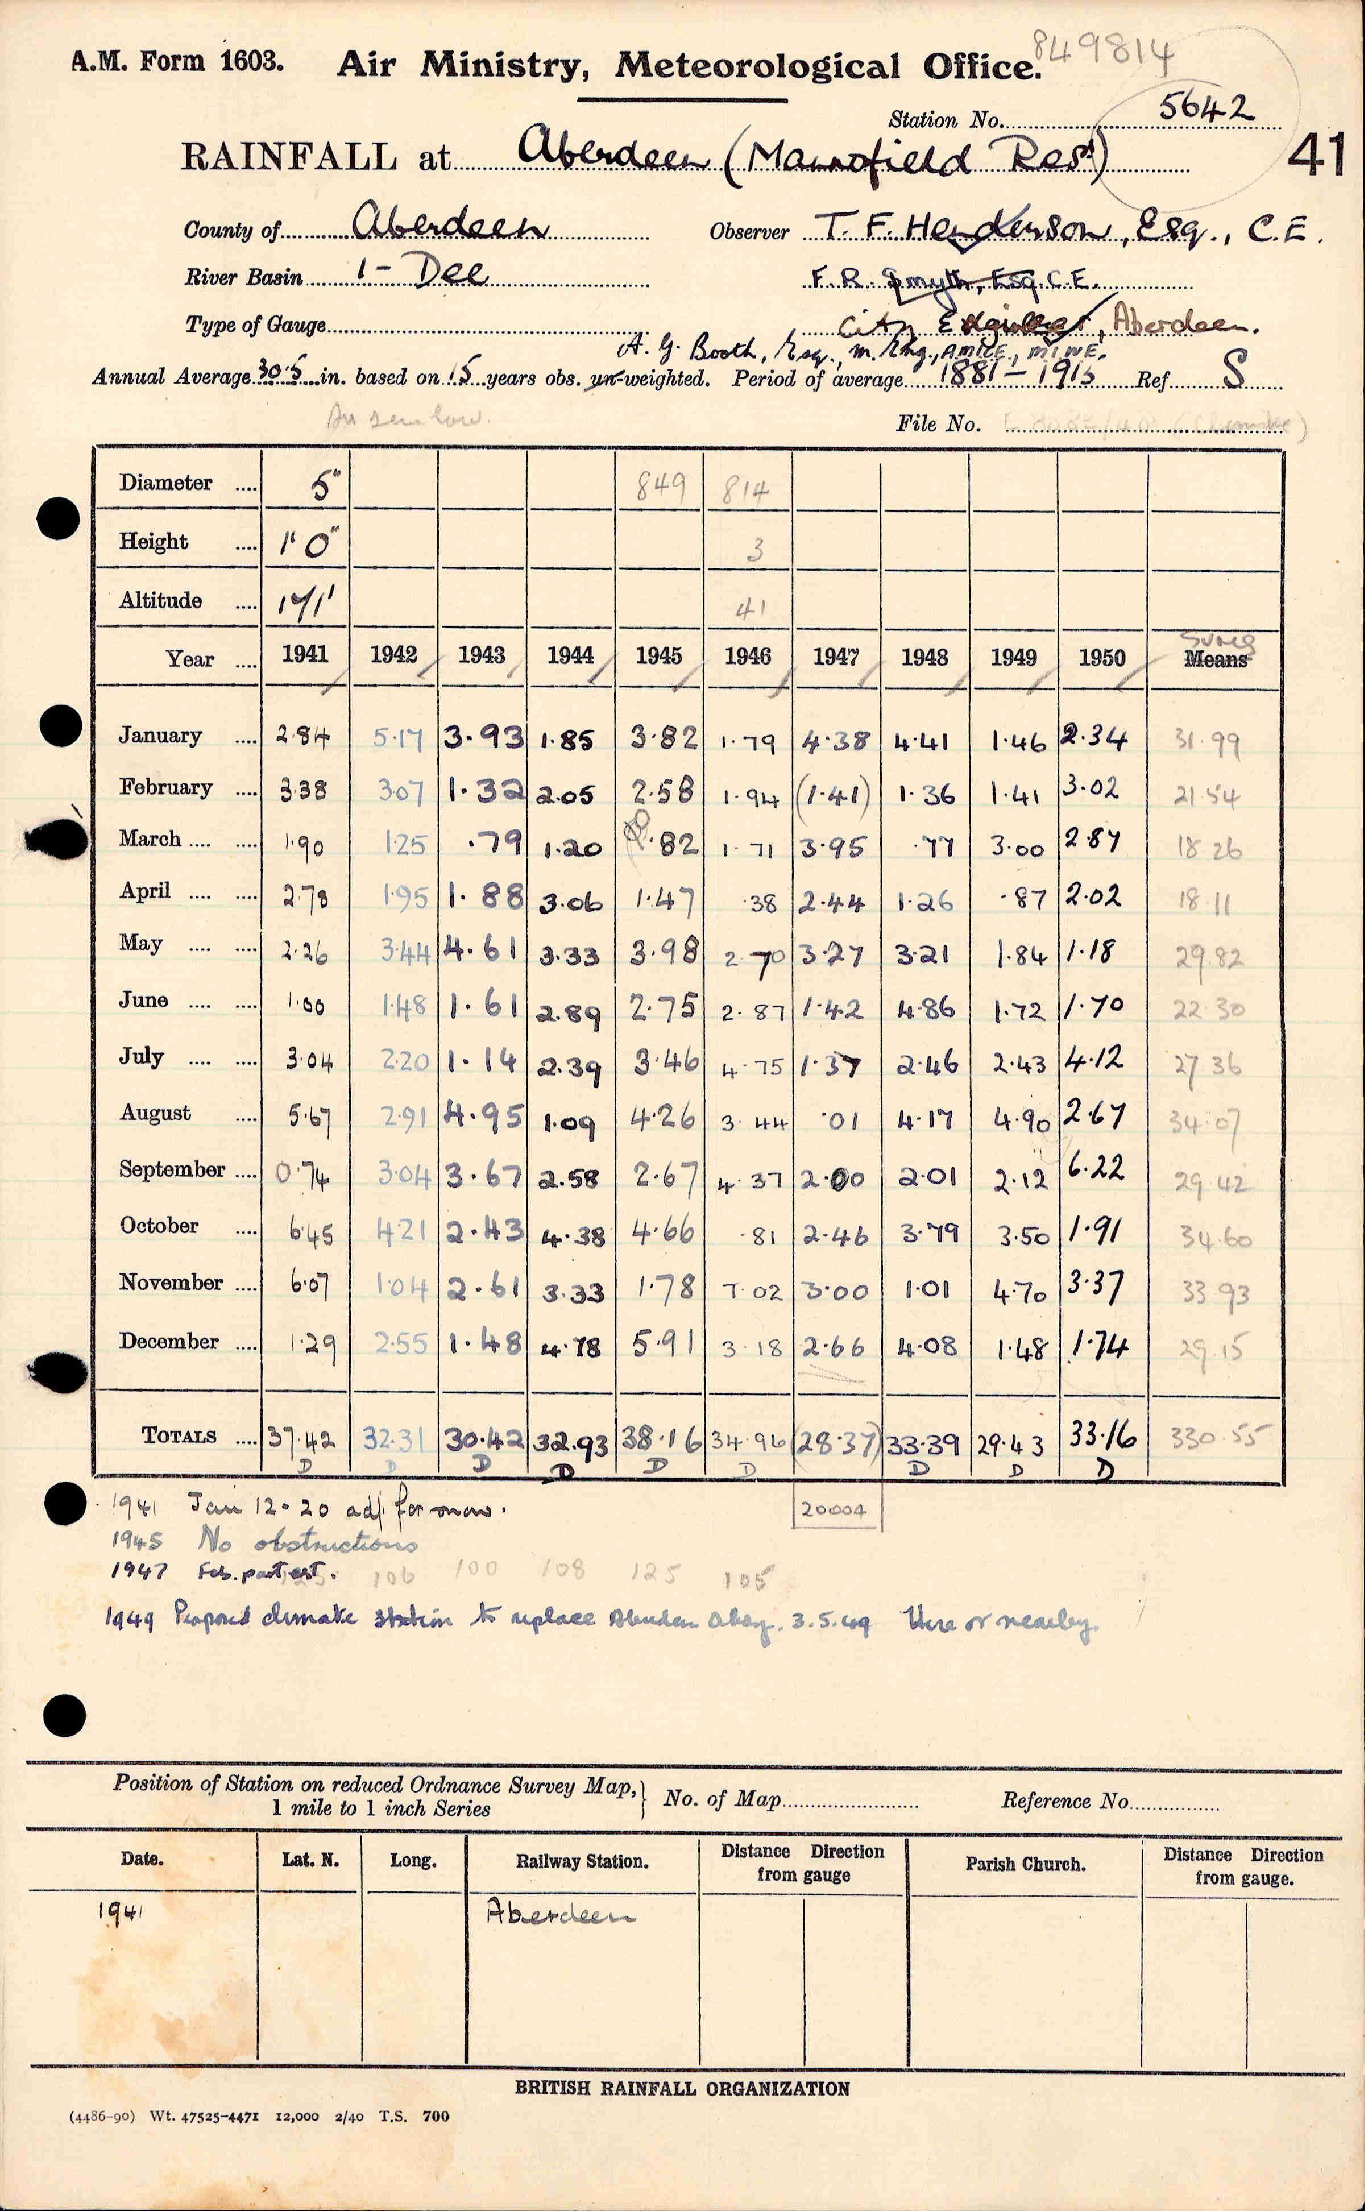 849814
A.M. Form 1603. Air Ministry, Meteorological Office.
Station No. 5642
RAINFALL at Aberdeen (Mannofield Resr) 41
County of Aberdeen Observer T. F. Henderson, Esq., C.E.
River Basin 1- Dee F. R. Smyth, Esq. C.E.
Type of Gauge City Engineer, Aberdeen.
A. G. Booth, Esq., M. Eng., A.M.I.C.E., M.I.W.E.
Annual Average 30.5 in. based on 15 years obs. un-weighted. Period of average 1881-1915 Ref S
File No.
Diameter .... 5" 849 814
Height .... 1' 0" 3
Altitude .... 171' 41
Sums
Year .... 1941 1942 1943 1944 1945 1946 1947 1948 1949 1950 Means
January .... 2.84 5.17 3.93 1.85 3.82 1.79 4.38 4.41 1.46 2.34 31.99
February .... 3.38 3.07 1.32 2.05 2.58 1.94 (1.41) 1.36 1.41 3.02 21.54
March .... .... 1.90 1.25 .79 1.20 .82 1.71 3.95 .77 3.00 2.87 18.26
April .... .... 2.79 1.95 1.88 3.06 1.47 .38 2.44 1.26 .87 2.02 18.11
May .... .... 2.26 3.44 4.61 3.33 3.98 2.70 3.27 3.21 1.84 1.18 29.82
June .... .... 1.00 1.48 1.61 2.89 2.75 2.87 1.42 4.86 1.72 1.70 22.30
July .... .... 3.04 2.20 1.14 2.39 3.46 4.75 1.37 2.46 2.43 4.12 27.36
August .... 5.67 2.91 4.95 1.09 4.26 3.44 .01 4.17 4.90 2.67 34.07
September .... 0.74 3.04 3.67 2.58 2.67 4.37 2.00 2.01 2.12 6.22 29.42
October .... 6.45 4.21 2.43 4.38 4.66 .81 2.46 3.79 3.50 1.91 34.60
November .... 6.07 1.04 2.61 3.33 1.78 7.02 3.00 1.01 4.70 3.37 33.93
December .... 1.29 2.55 1.48 4.78 5.91 3.18 2.66 4.08 1.48 1.74 29.15
TOTALS .... 37.42 32.31 30.42 32.93 38.16 34.96 (28.37) 33.39 29.43 33.16 330.55
D D D D D D D D D
1941 Jan 12-20 adj. for snow. 20004
1945 No obstructions
1947 Feb. part est. 106 100 108 125 105
1949 Proposed climate station to replace Aberdeen Obsy. 3.5.49 Here or nearby.
Position of Station on reduced Ordnance Survey Map,} No. of Map Reference No.
1 mile to 1 inch Series
Date. Lat. N. Long. Railway Station. Distance Direction from gauge Parish Church. Distance Direction from gauge.
1941 Aberdeen
BRITISH RAINFALL ORGANIZATION
(4486-90) Wt. 47525-4471 12,000 2/40 T.S. 700